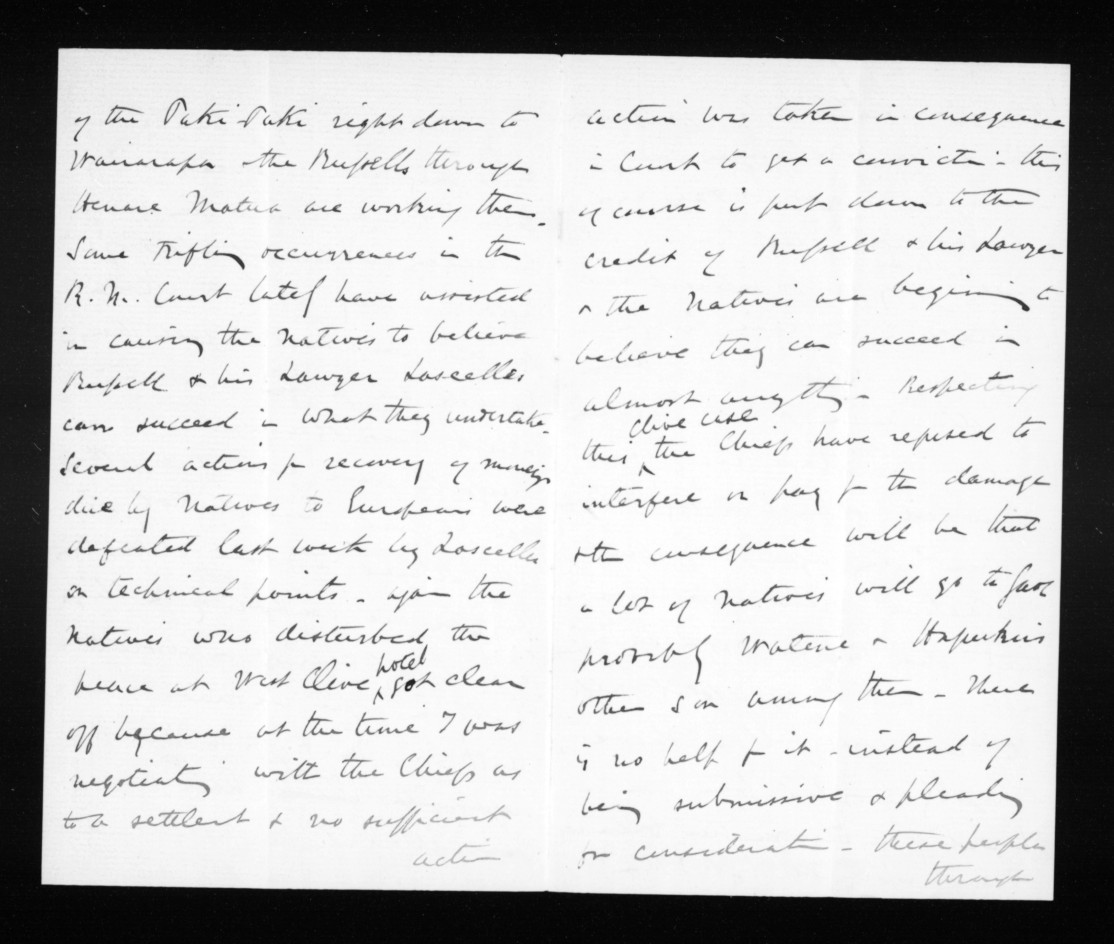 of the Taki Taki right down to
Wairarapa - the Russells through
Henare Matua are working them.
Some trifling occurrences in the
R. M. Court lately have assisted
in causing the Natives to believe
Russell & his Lawyer Lascelles
can succeed in what they undertake.
Several actions for recovery of moneys
due by Natives to Europeans were
defeated last week by Lascelles
on technical points - again the
Natives who disturbed the
peace at West Clive hotel got clear
off because at the time I was
negotiating with the Chiefs as
to a settlent & no sufficient
action
action was taken in consequence
in Court to get a conviction - this
of course is put down to the
credit of Russell & his Lawyer
& the Natives are begining to
believe they can succeed in
almost anything - Respecting
this Clive case the Chiefs have refused to
interfere or pay for the damage
& the consequence will be that
a lot of Natives will go to Gaol
probably Watene & Hapukus
other son among them - There
is no help for it - instead of
being submissive & pleading
for consideration - these people
through